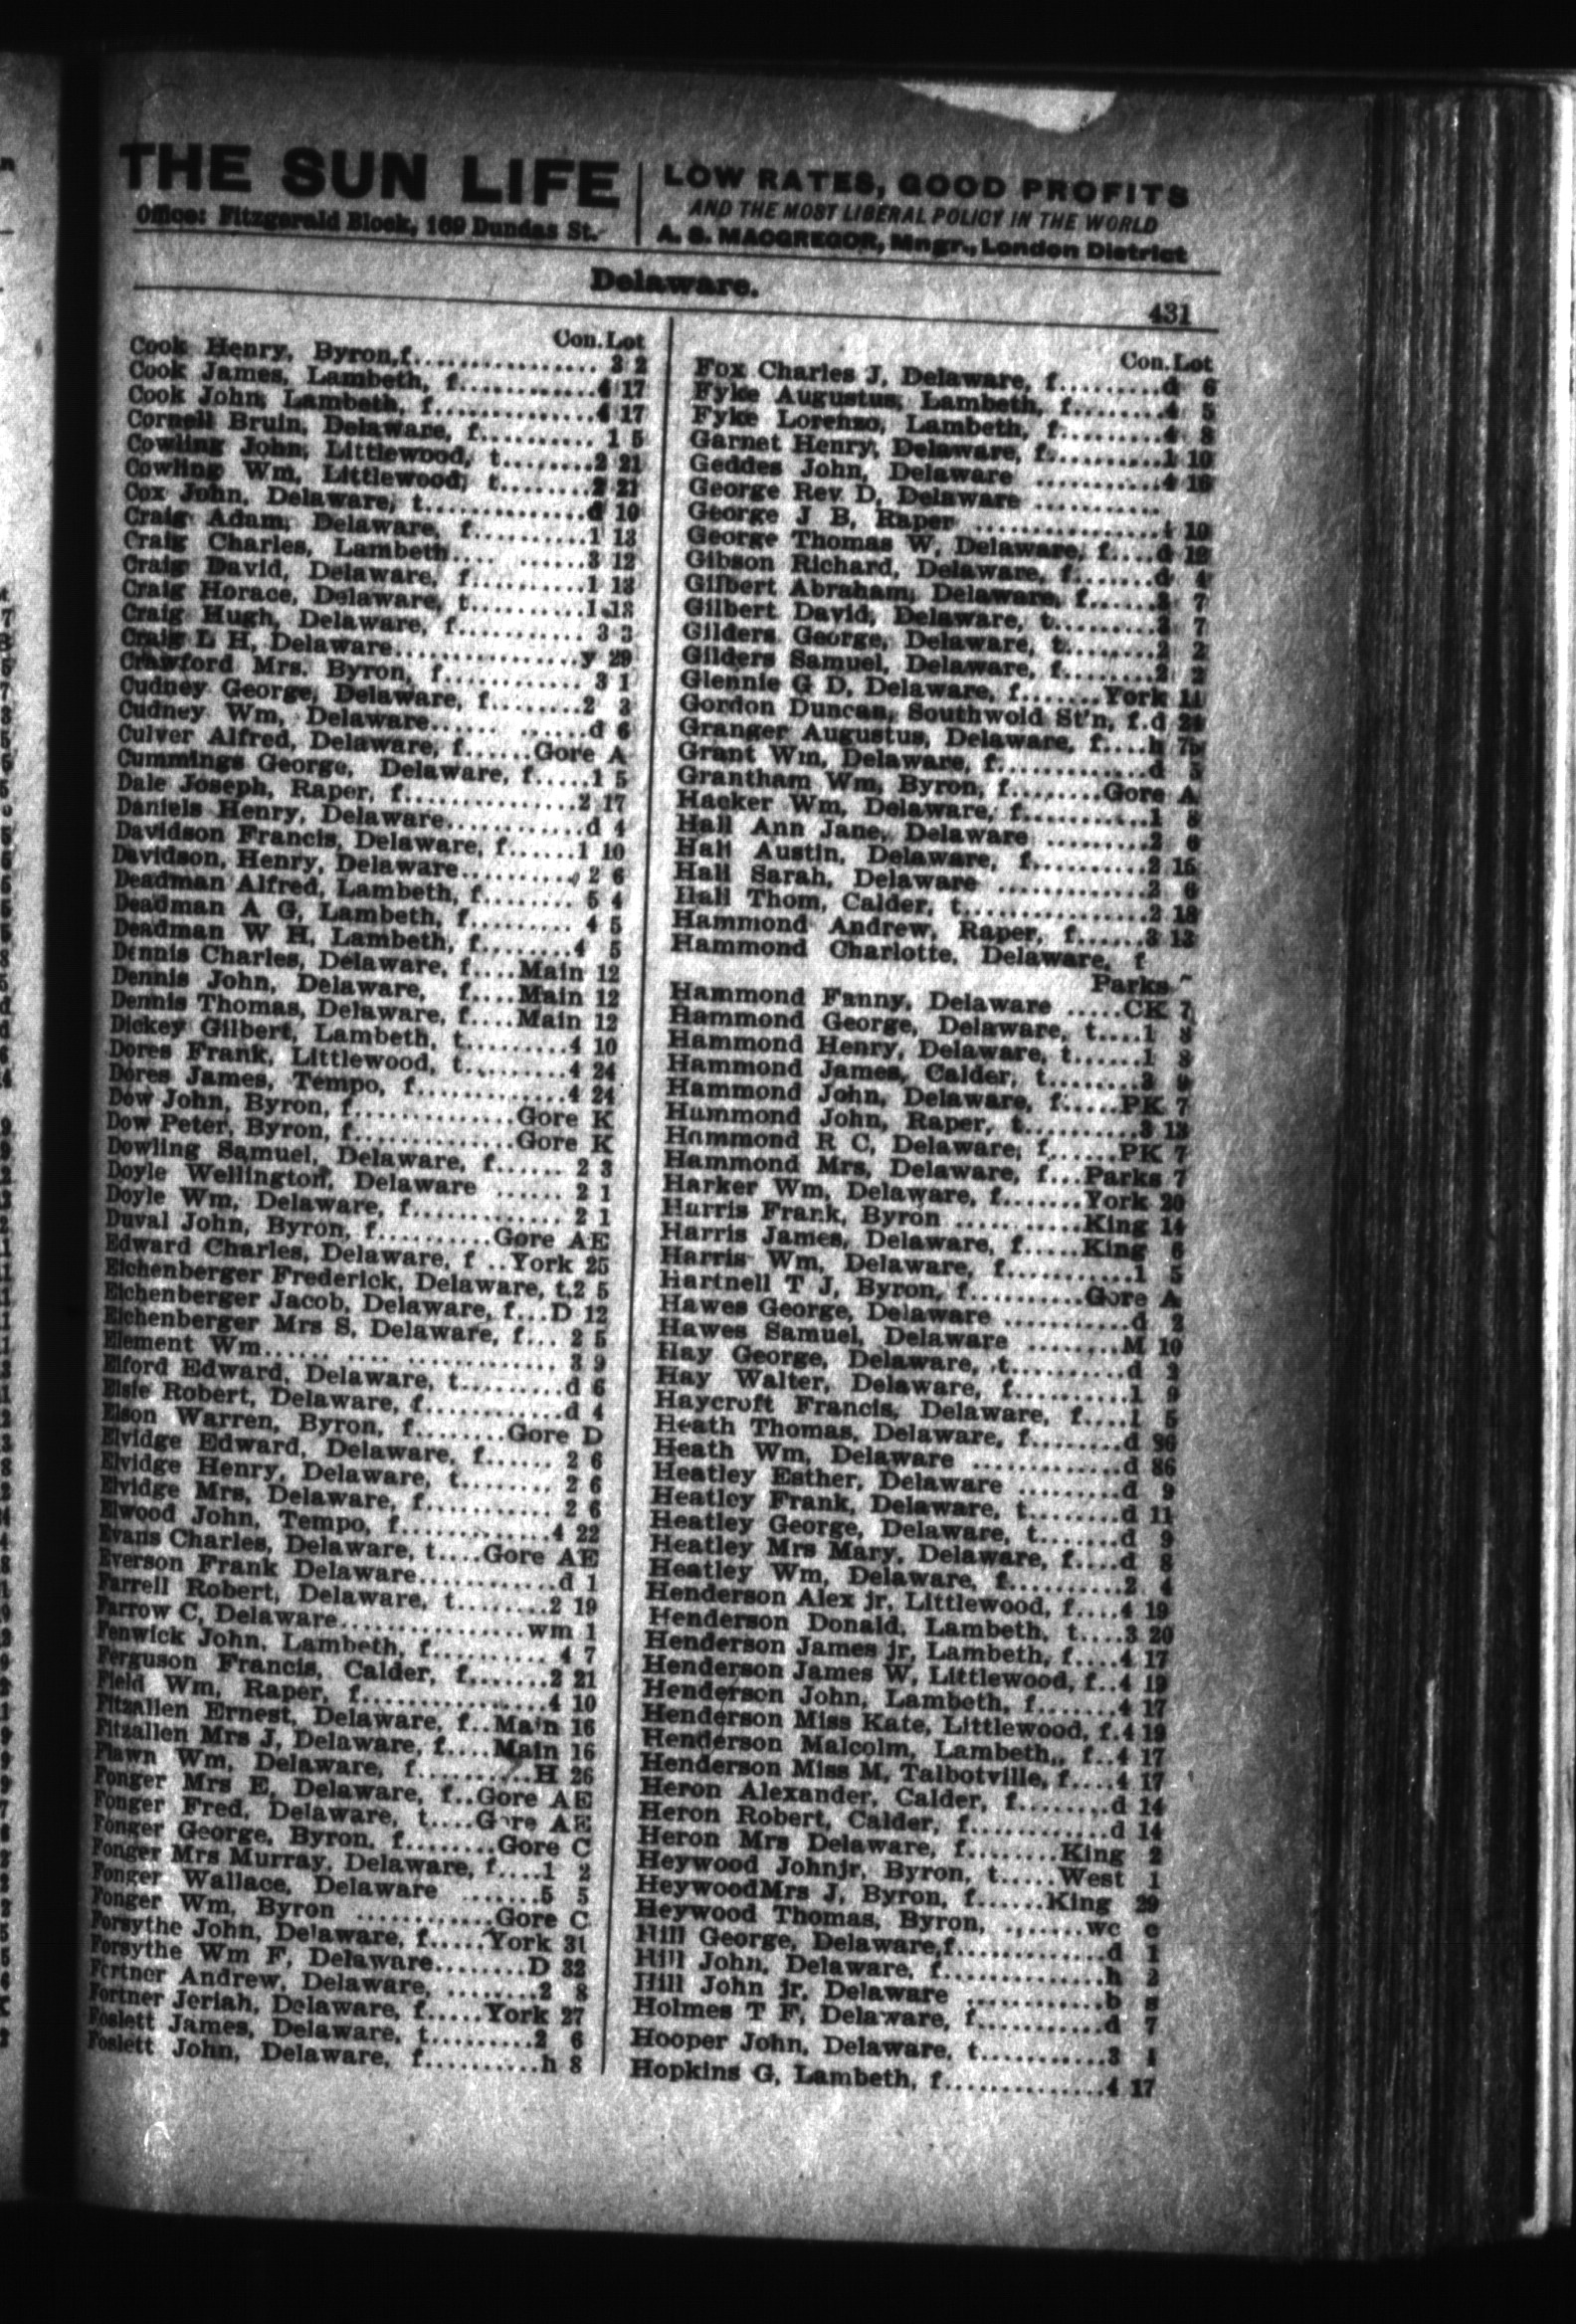 THE SUN LIFE
Office: Fitzgerald Block, 169 Dundas St.
LOW RATES, GOOD PROFITS
AND THE MOST LIBERAL POLICY IN THE WORLD
A. S. MACGREGOR, Mngr., London District
Delaware.
431
Con. Lot
Cook Henry, Byron, f................ 3 2
Cook James, Lambeth, f............4 17
Cook John, Lambeth, f..............4 17
Cornell Bruin, Delaware, f.......... 1 5
Cowling John, Littlewood, t.........2 21
Cowling Wm, Littlewood, t........2 21
Cox John, Delaware, t..............d 10
Craig Adam, Delaware, f..........1 13
Craig Charles, Lambeth.... ......3 12
Craig David, Delaware, f..........1 13
Craig Horace, Delaware, t..........1 13
Craig Hugh, Delaware, f........... 3 3
Craig L H, Delaware................y 29
Crawford Mrs. Byron, f............ 3 1
Cudney George, Delaware, f........2 3
Cudney Wm, Delaware...... ......d 6
Culver Alfred, Delaware, f......Gore A
Cummings George, Delaware, f.....1 5
Dale Joseph, Raper, f...............2 17
Daniels Henry, Delaware............d 4
Davidson Francis, Delaware, f......1 10
Davidson, Henry, Delaware.......... 2 6
Deadman Alfred, Lambeth, f........ 5 4
Deadman A G, Lambeth, f......... 4 5
Deadman W H, Lambeth, f.........4 5
Dennis Charles, Delaware, f....Main 12
Dennis John, Delaware, f....Main 12
Dennis Thomas, Delaware, f....Main 12
Dickey Gilbert, Lambeth, t.........4 10
Dores Frank, Littlewood, t.........4 24
Dores James, Tempo, f.............4 24
Dow John, Byron, f.............Gore K
Dow Peter, Byron, f.............Gore K
Dowling Samuel, Delaware, f...... 2 3
Doyle Wellington, Delaware ...... 2 1
Doyle Wm, Delaware, f............. 2 1
Duval John, Byron, f..........Gore AE
Edward Charles, Delaware, f ..York 25
Eichenberger Frederick, Delaware, t.2 5
Eichenberger Jacob, Delaware, f...D 12
Eichenberger Mrs S, Delaware, f... 2 5
Element Wm...... .... ............. 3 9
Elford Edward, Delaware, t.........d 6
Elsie Robert, Delaware, f............d 4
Elson Warren, Byron, f........Gore D
Elvidge Edward, Delaware, f...... 2 6
Elvidge Henry, Delaware, t......... 2 6
Elvidge Mrs, Delaware, f............ 2 6
Elwood John, Tempo, f.............4 22
Evans Charles, Delaware, t....Gore AE
Everson Frank Delaware............d 1
Farrell Robert, Delaware, t........2 19
Farrow C, Delaware................wm 1
Fenwick John, Lambeth, f.......... 4 7
Ferguson Francis, Calder, f.......2 21
Field Wm, Raper, f................4 10
Fitzallen Ernest, Delaware, f..Main 16
Fitzallen Mrs J, Delaware, f....Main 16
Flawn Wm, Delaware, f..........H 26
Fonger Mrs E, Delaware, f..Gore AE
Fonger Fred, Delaware, t....Gore AE
Fonger George, Byron, f........Gore C
Fonger Mrs Murray, Delaware, f....1 2
Fonger Wallace, Delaware .......5 5
Fonger Wm, Byron ............Gore C
Forsythe John, Delaware, f.....York 31
Forsythe Wm F, Delaware........D 32
Fortner Andrew, Delaware, ........2 8
Fortner Jeriah, Delaware, f.....York 27
Foslett James, Delaware, t.........2 6
Foslett John, Delaware, f..........h 8
Con. Lot
Fox Charles J, Delaware, f.........d 6
Fyke Augustus, Lambeth, f........4 5
Fyke Lorenzo, Lambeth, f.........4 8
Garnet Henry, Delaware, f..........1 10
Geddes John, Delaware ...........4 16
George Rev D, Delaware ............
George J B, Raper ................4 10
George Thomas W, Delaware, f....d 12
Gibson Richard, Delaware, f.......d 4
Gilbert Abraham, Delaware, f......3 7
Gilbert David, Delaware, t.........3 7
Gilders George, Delaware, t........2 2
Gilders Samuel, Delaware, f.......2 2
Glennie G D, Delaware, f.......York 11
Gordon Duncan, Southwold St'n, f.d 24
Granger Augustus, Delaware, f....h 7b
Grant Wm, Delaware, f.............d 5
Grantham Wm, Byron, f........Gore A
Hacker Wm, Delaware, f...........1 8
Hall Ann Jane, Delaware .........2 6
Hall Austin, Delaware, f..........2 15
Hall Sarah, Delaware .............2 6
Hall Thom, Calder, t................2 18
Hammond Andrew, Raper, f......3 13
Hammond Charlotte, Delaware, f
Parks
Hammond Fanny, Delaware .....CK 7
Hammond George, Delaware, t....1 8
Hammond Henry, Delaware, t......1 8
Hammond James, Calder, t........3 9
Hammond John, Delaware, f.....PK 7
Hammond John, Raper, t..........3 13
Hammond R C, Delaware, f......PK 7
Hammond Mrs, Delaware, f...Parks 7
Harker Wm, Delaware, f.......York 20
Harris Frank, Byron ...........King 14
Harris James, Delaware, f.....King 6
Harris Wm, Delaware, f...........1 5
Hartnell T J, Byron, f..........Gore A
Hawes George, Delaware ...........d 2
Hawes Samuel, Delaware ........M 10
Hay George, Delaware, t..........d 2
Hay Walter, Delaware, f..........1 9
Haycroft Francis, Delaware, f....1 5
Heath Thomas, Delaware, f........d 36
Heath Wm, Delaware ..............d 36
Heatley Esther, Delaware .........d 9
Heatley Frank, Delaware, t........d 11
Heatley George, Delaware, t.......d 9
Heatley Mrs Mary, Delaware, f....d 8
Heatley Wm, Delaware, f..........2 4
Henderson Alex jr, Littlewood, f....4 19
Henderson Donald, Lambeth, t....3 20
Henderson James jr, Lambeth, f....4 17
Henderson James W, Littlewood, f..4 19
Henderson John, Lambeth, f.......4 17
Henderson Miss Kate, Littlewood, f.4 19
Henderson Malcolm, Lambeth,, f..4 17
Henderson Miss M, Talbotville, f....4 17
Heron Alexander, Calder, f........d 14
Heron Robert, Calder, f............d 14
Heron Mrs Delaware, f........King 2
Heywood Johnjr, Byron, t.....West 1
HeywoodMrs J, Byron, f......King 29
Heywood Thomas, Byron, .......wc c
Hill George, Delaware,f.............d 1
Hill John, Delaware, f..............h 2
Hill John jr, Delaware ............b
Holmes T F, Delaware, f...........d 7
Hooper John, Delaware, t...........3 1
Hopkins G, Lambeth, f..............4 17